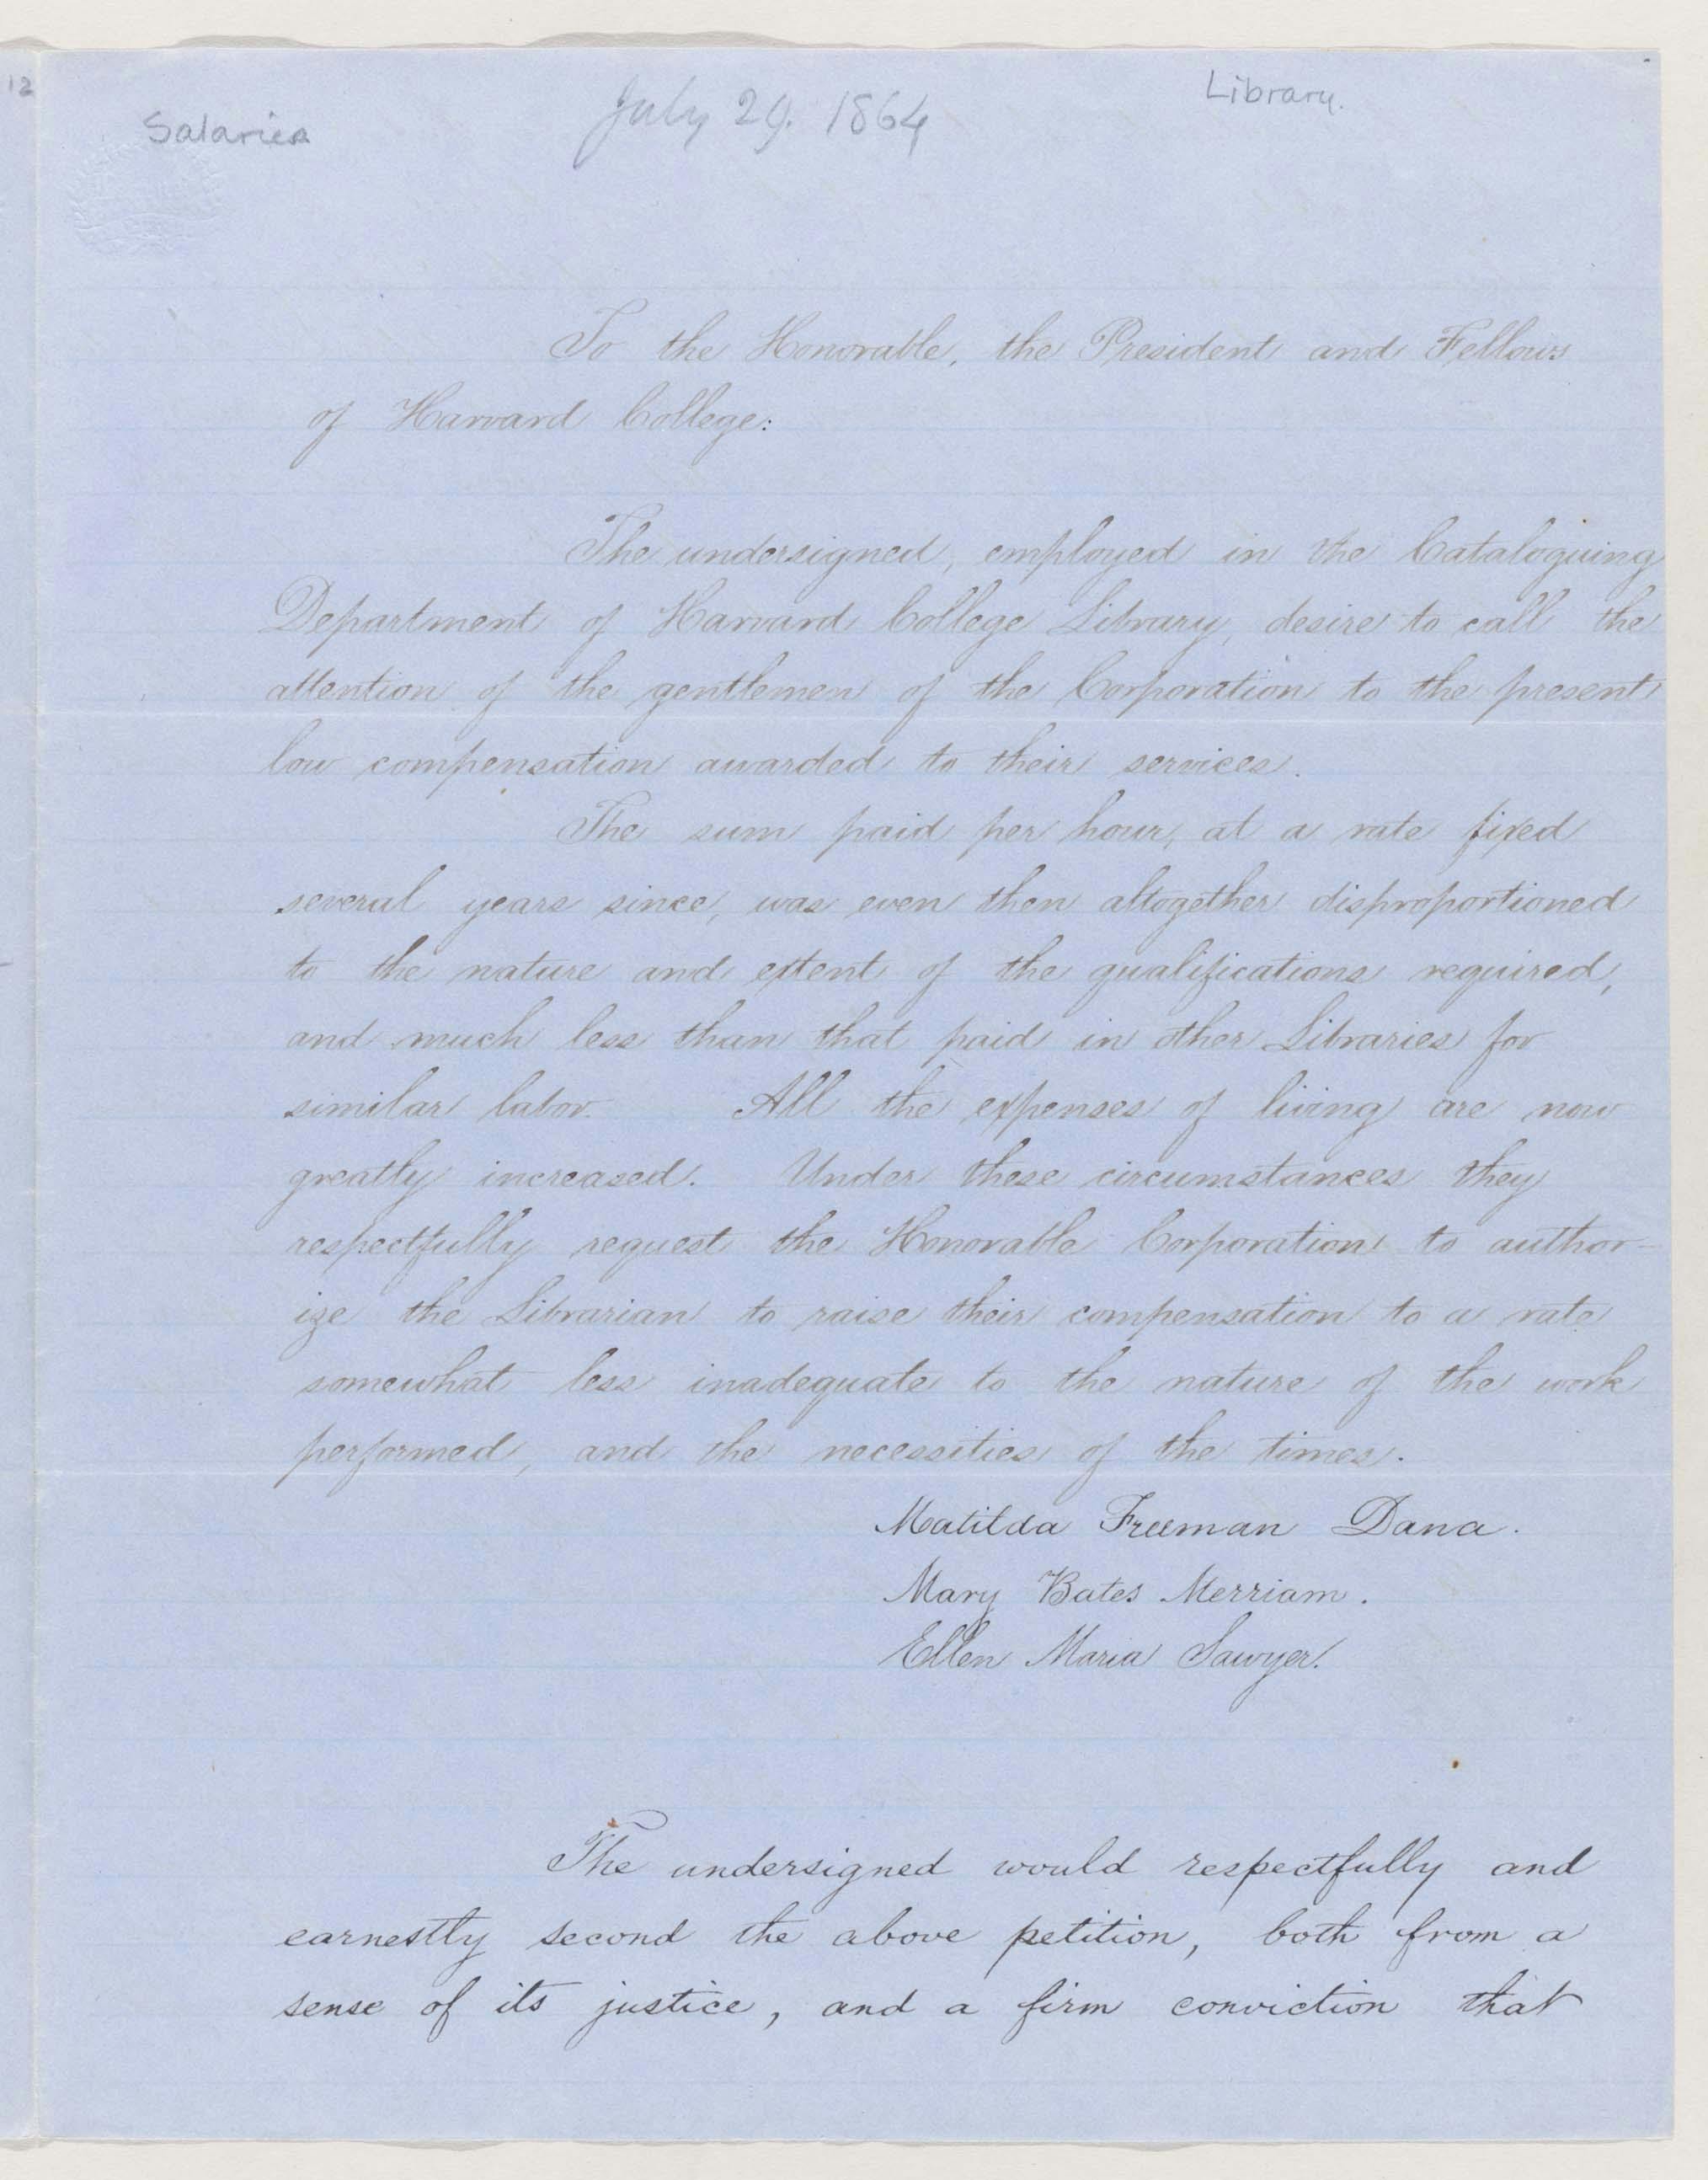 12
Salaries
July 29. 1864
Library.
To the Honorable, the President and Fellows
of Harvard College:
The undersigned, employed in the Cataloguing
Department of Harvard College Library, desire to call the
attention of the gentlemen of the Corporation to the present
low compensation awarded to their services.
The sum paid per hour, at a rate fixed
several years since, was even then altogether disproportioned
to the nature and extent of the qualifications required,
and much less than that paid in other Libraries for
similar labor. All the expenses of living are now
greatly increased. Under these circumstances they
respectfully request the Honorable Corporation to author-
ize the Librarian to raise their compensation to a rate
somewhat less inadequate to the nature of the work
performed, and the necessities of the times.
Matilda Freeman Dana.
Mary Bates Merriam.
Ellen Maria Sawyer.
The undersigned would respectfully and
earnestly second the above petition, both from a
sense of its justice, and a firm conviction that